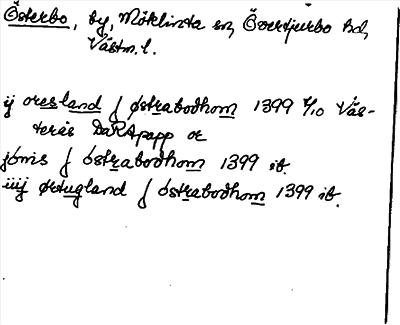 Österbo, by, Möklinta sn, Övertjurbo hd,
Västm. l.
ij oresland j østrabodhom 1399 7/10 Väs-
terås DaRApapp or
jönis j østrabodhom 1399 ib.
iiij ørtugland j østrabodhom 1399 ib.